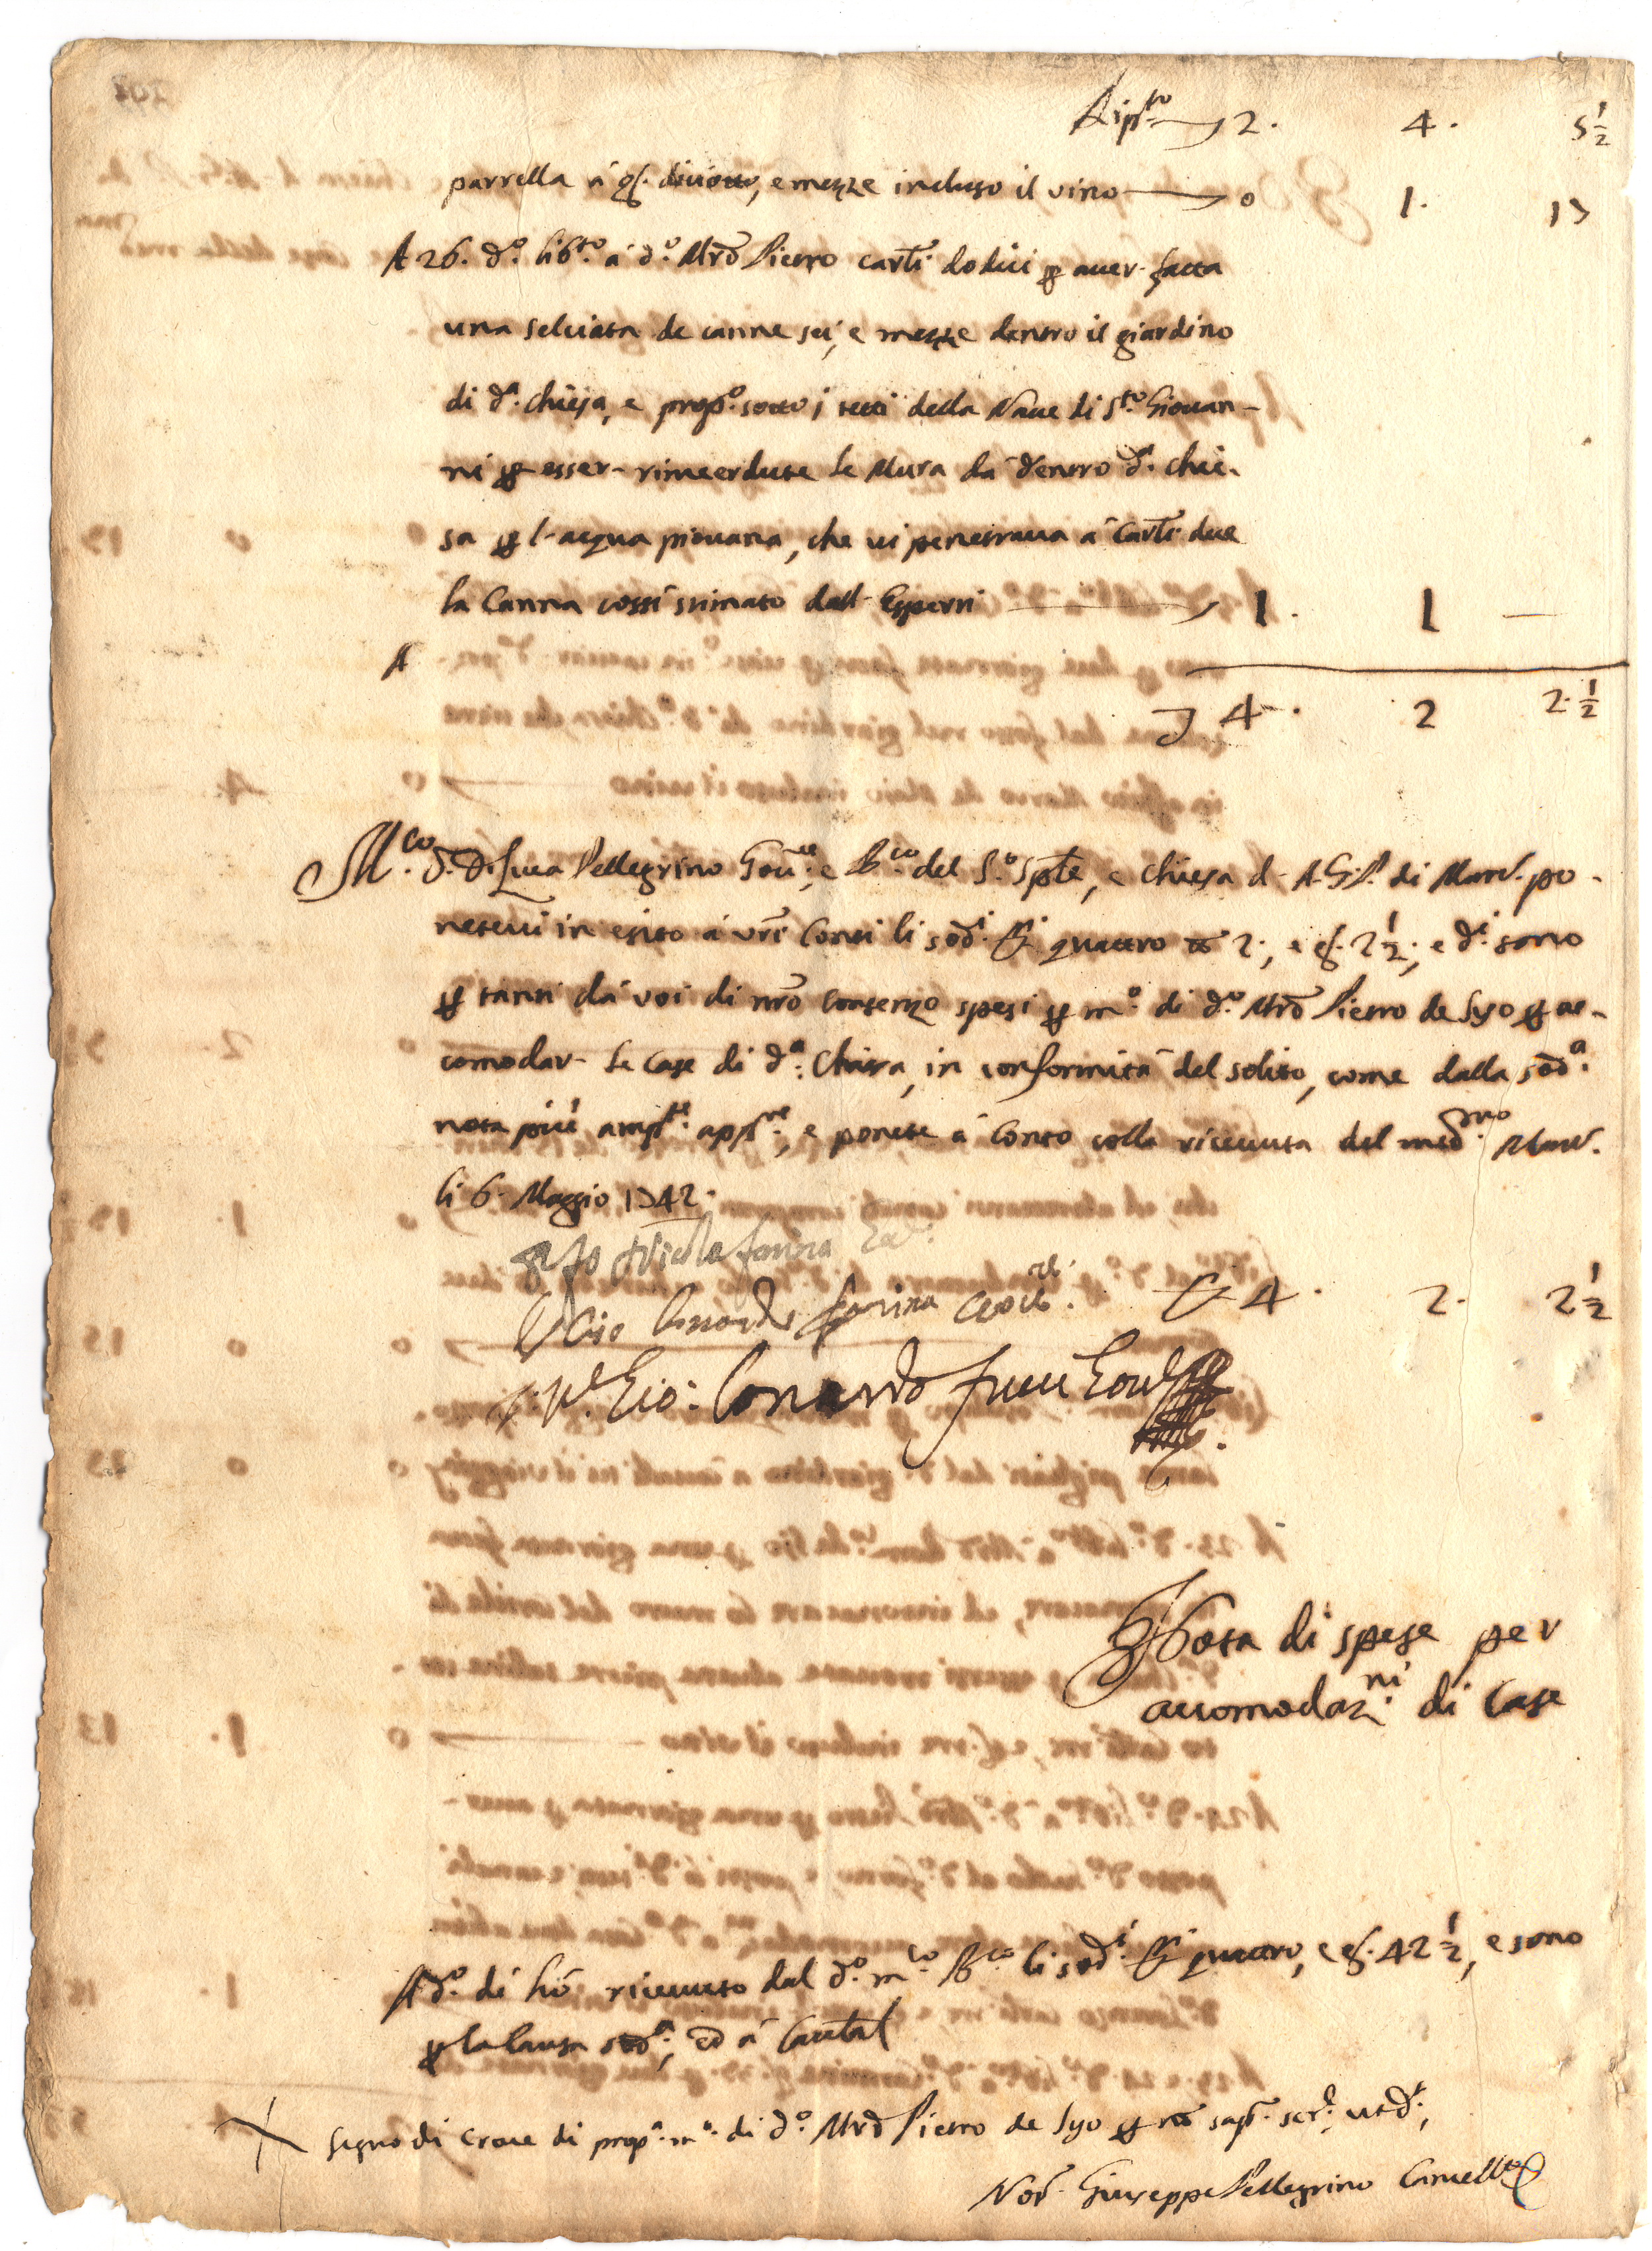 Rip.to 2. 4. 5 1/2
parrella á g. diciotto, e mezze incluso il vino 0 1. 17
A 26. d.o lib.to á d.o Mrõ Pietro carl: dodici p aver fatta
una selciata de canne sei, e mezze dentro il giardino
di d.a chiesa, e prop.o sotto i tetti della Nave di S.to Giovan-
ni p esser rimeerdute le Mura dá dentro d.a chie-
sa p l'acqua piovana, che vi penetrava á carl: due
la Canna cossí stimato dall' Esperti 1. 1 —
A
4. 2 2. 1/2
M.co D. Di Luca Pellegrino Gov.re, e del S.o Sple, e chiesa d. A.G.P. di Mard. po-
netevi in esito á vrî Conti li sod.i quattro 2, e g. 2 1/2, e d.i sono
p tanti dá voi di nrõ consenzo spesi p m.o di d.o Mrõ Pietro de Syo p ac-
comodar le case di d.a Chiesa, in conformitá del solito, come dalla sod.a
nota piú amp.te app.re, e ponete á Conto colla ricevuta del med.mo Mard.
li 6. Maggio 1742.
Nicola farina
Leonardo farina 4. 2. 2 1/2
Gio: Lonardo
Nota di spese per
accomodaz.ni di Case
A d.o dí hó ricevuto dal d.o m.co li sod.i quattro, e g. 42 1/2, e sono
p la causa sod.a, ed á Cautal
Segno di Croce di prop.a m.o di d.o Mrõ Pietro de Syo p nõ sap.r scr.e ut d.r,
Not. Giuseppe Pellegrino Cancell.o